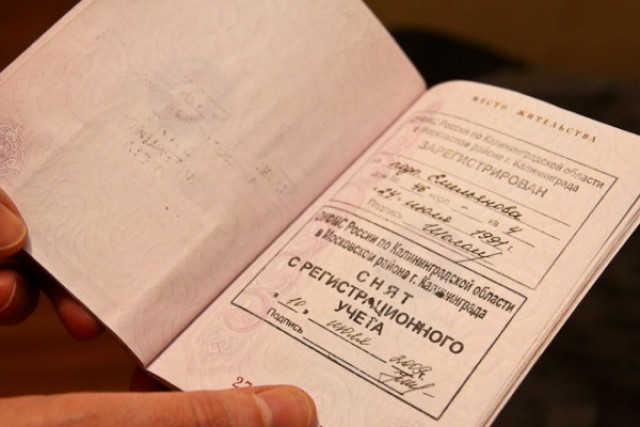 МЕСТО ЖИТЕЛЬСТВА
ОУФМС России по Калининградской области
в Московском районе г. Калининграда
ЗАРЕГИСТРИРОВАН
Емельянова
дом 46 корп. - кв 4
"24" июля 1991г.
Подпись
ОУФМС России по Калининградской области
в Московском районе г. Калининграда
СНЯТ
С РЕГИСТРАЦИОННОГО
УЧЕТА
"10" июля 2009
Подпись
27